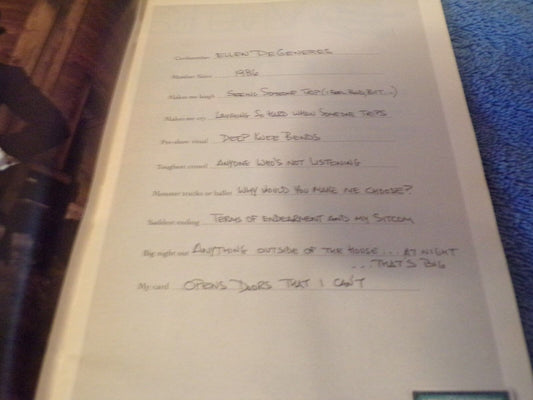 Cardmember ELLEN DEGENERES
Member Since 1986
Makes me laugh SEEING SOMEONE TRIP (I FEEL BAD, BUT...)
Makes me cry LAUGHING SO HARD WHEN SOMEONE TRIPS
Pre-show ritual DEEP KNEE BENDS
Toughest crowd ANYONE WHO'S NOT LISTENING
Monster trucks or ballet WHY SHOULD YOU MAKE ME CHOOSE?
Saddest ending TERMS OF ENDEARMENT AND MY SITCOM
Big night out ANYTHING OUTSIDE OF THE HOUSE... AT NIGHT
...THAT'S BIG
My card OPENS DOORS THAT I CAN'T